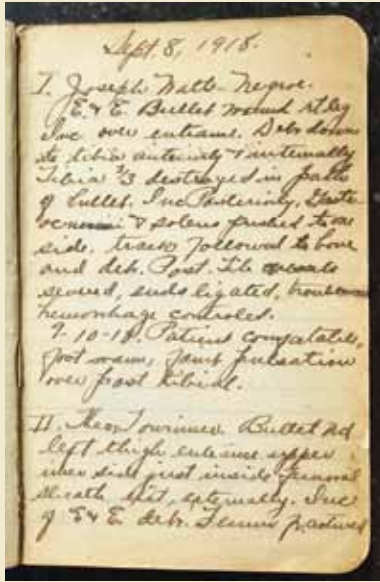 Sept. 8, 1918.
I. Joseph Watts - Negroe.
E & E Bullet wound rt leg
Inc over entrance. Deb. down
to tibia anteriorly & internally
Tibia 2/3 destroyed in path
of bullet. Inc Posteriorly,
& soleus pushed to one
side. track followed to bone
and deb. Post. Tib
severed, ends ligated,
hemorrhage controled.
9-10-18. Patient comfortable,
foot warm, faint pulsation
over post tibial.
II. Bullet wd
left thigh entrance upper
inner side just inside femoral
sheath, externally. Inc
of E & E deb. Femur fractured